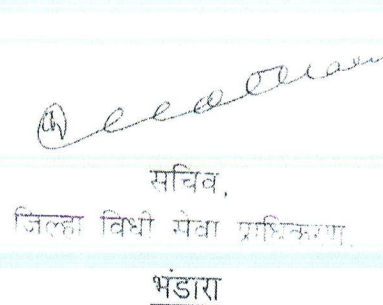 सचिव,
जिल्हा विधी सेवा प्राधिकरण,
भंडारा